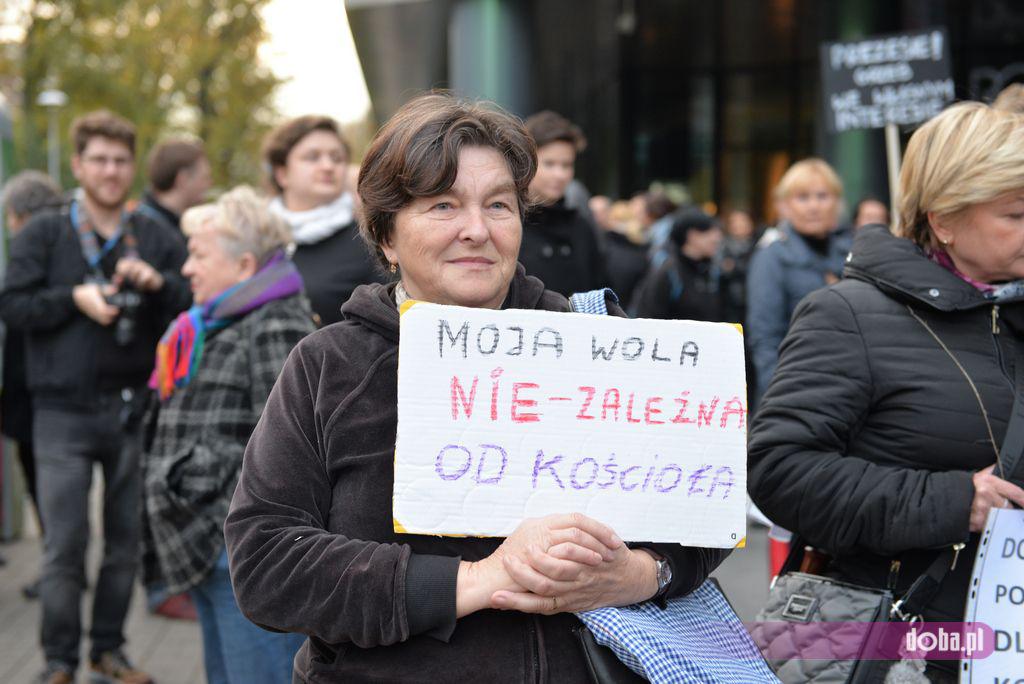 PREZESIE!
WE WŁASNYM
INTERESIE
MOJA WOLA
NIE-ZALEŻNA
OD KOŚCIOŁA
DO
PO
DL
doba.pl